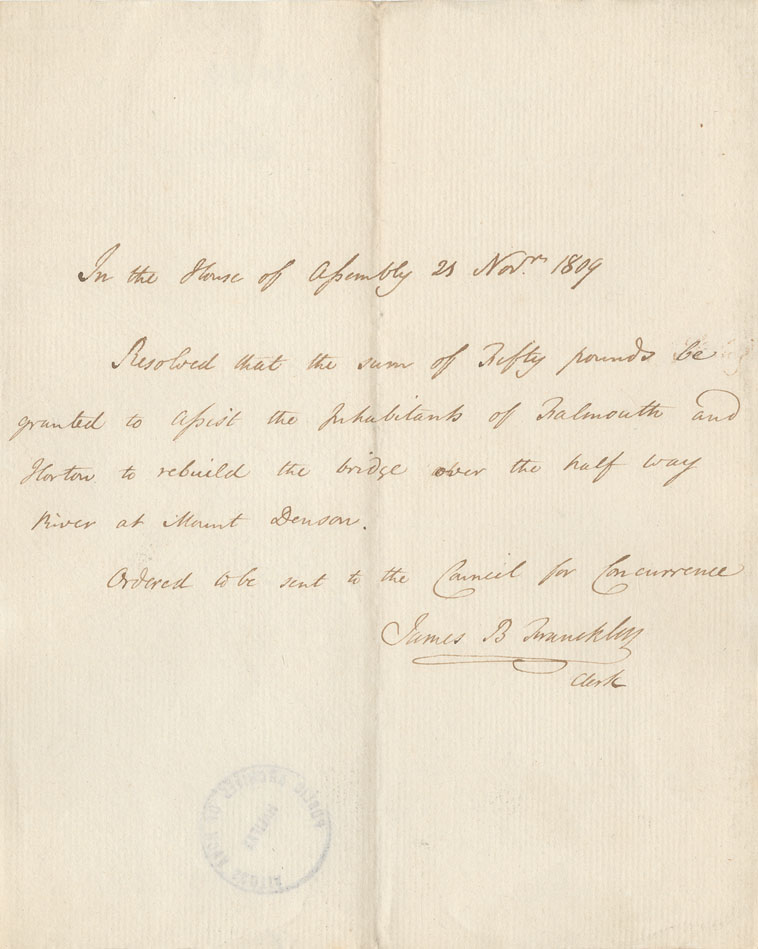 In the House of Assembly 21 Novr. 1809
Resolved that the sum of Fifty pounds be
granted to assist the Inhabitants of Falmouth and
Horton to rebuild the bridge over the half way
River at Mount Denson.
Ordered to be sent to the Council for Concurrence
James B Franckliyn
Clerk
PUBLIC ARCHIVES OF NOVA SCOTIA
HALIFAX